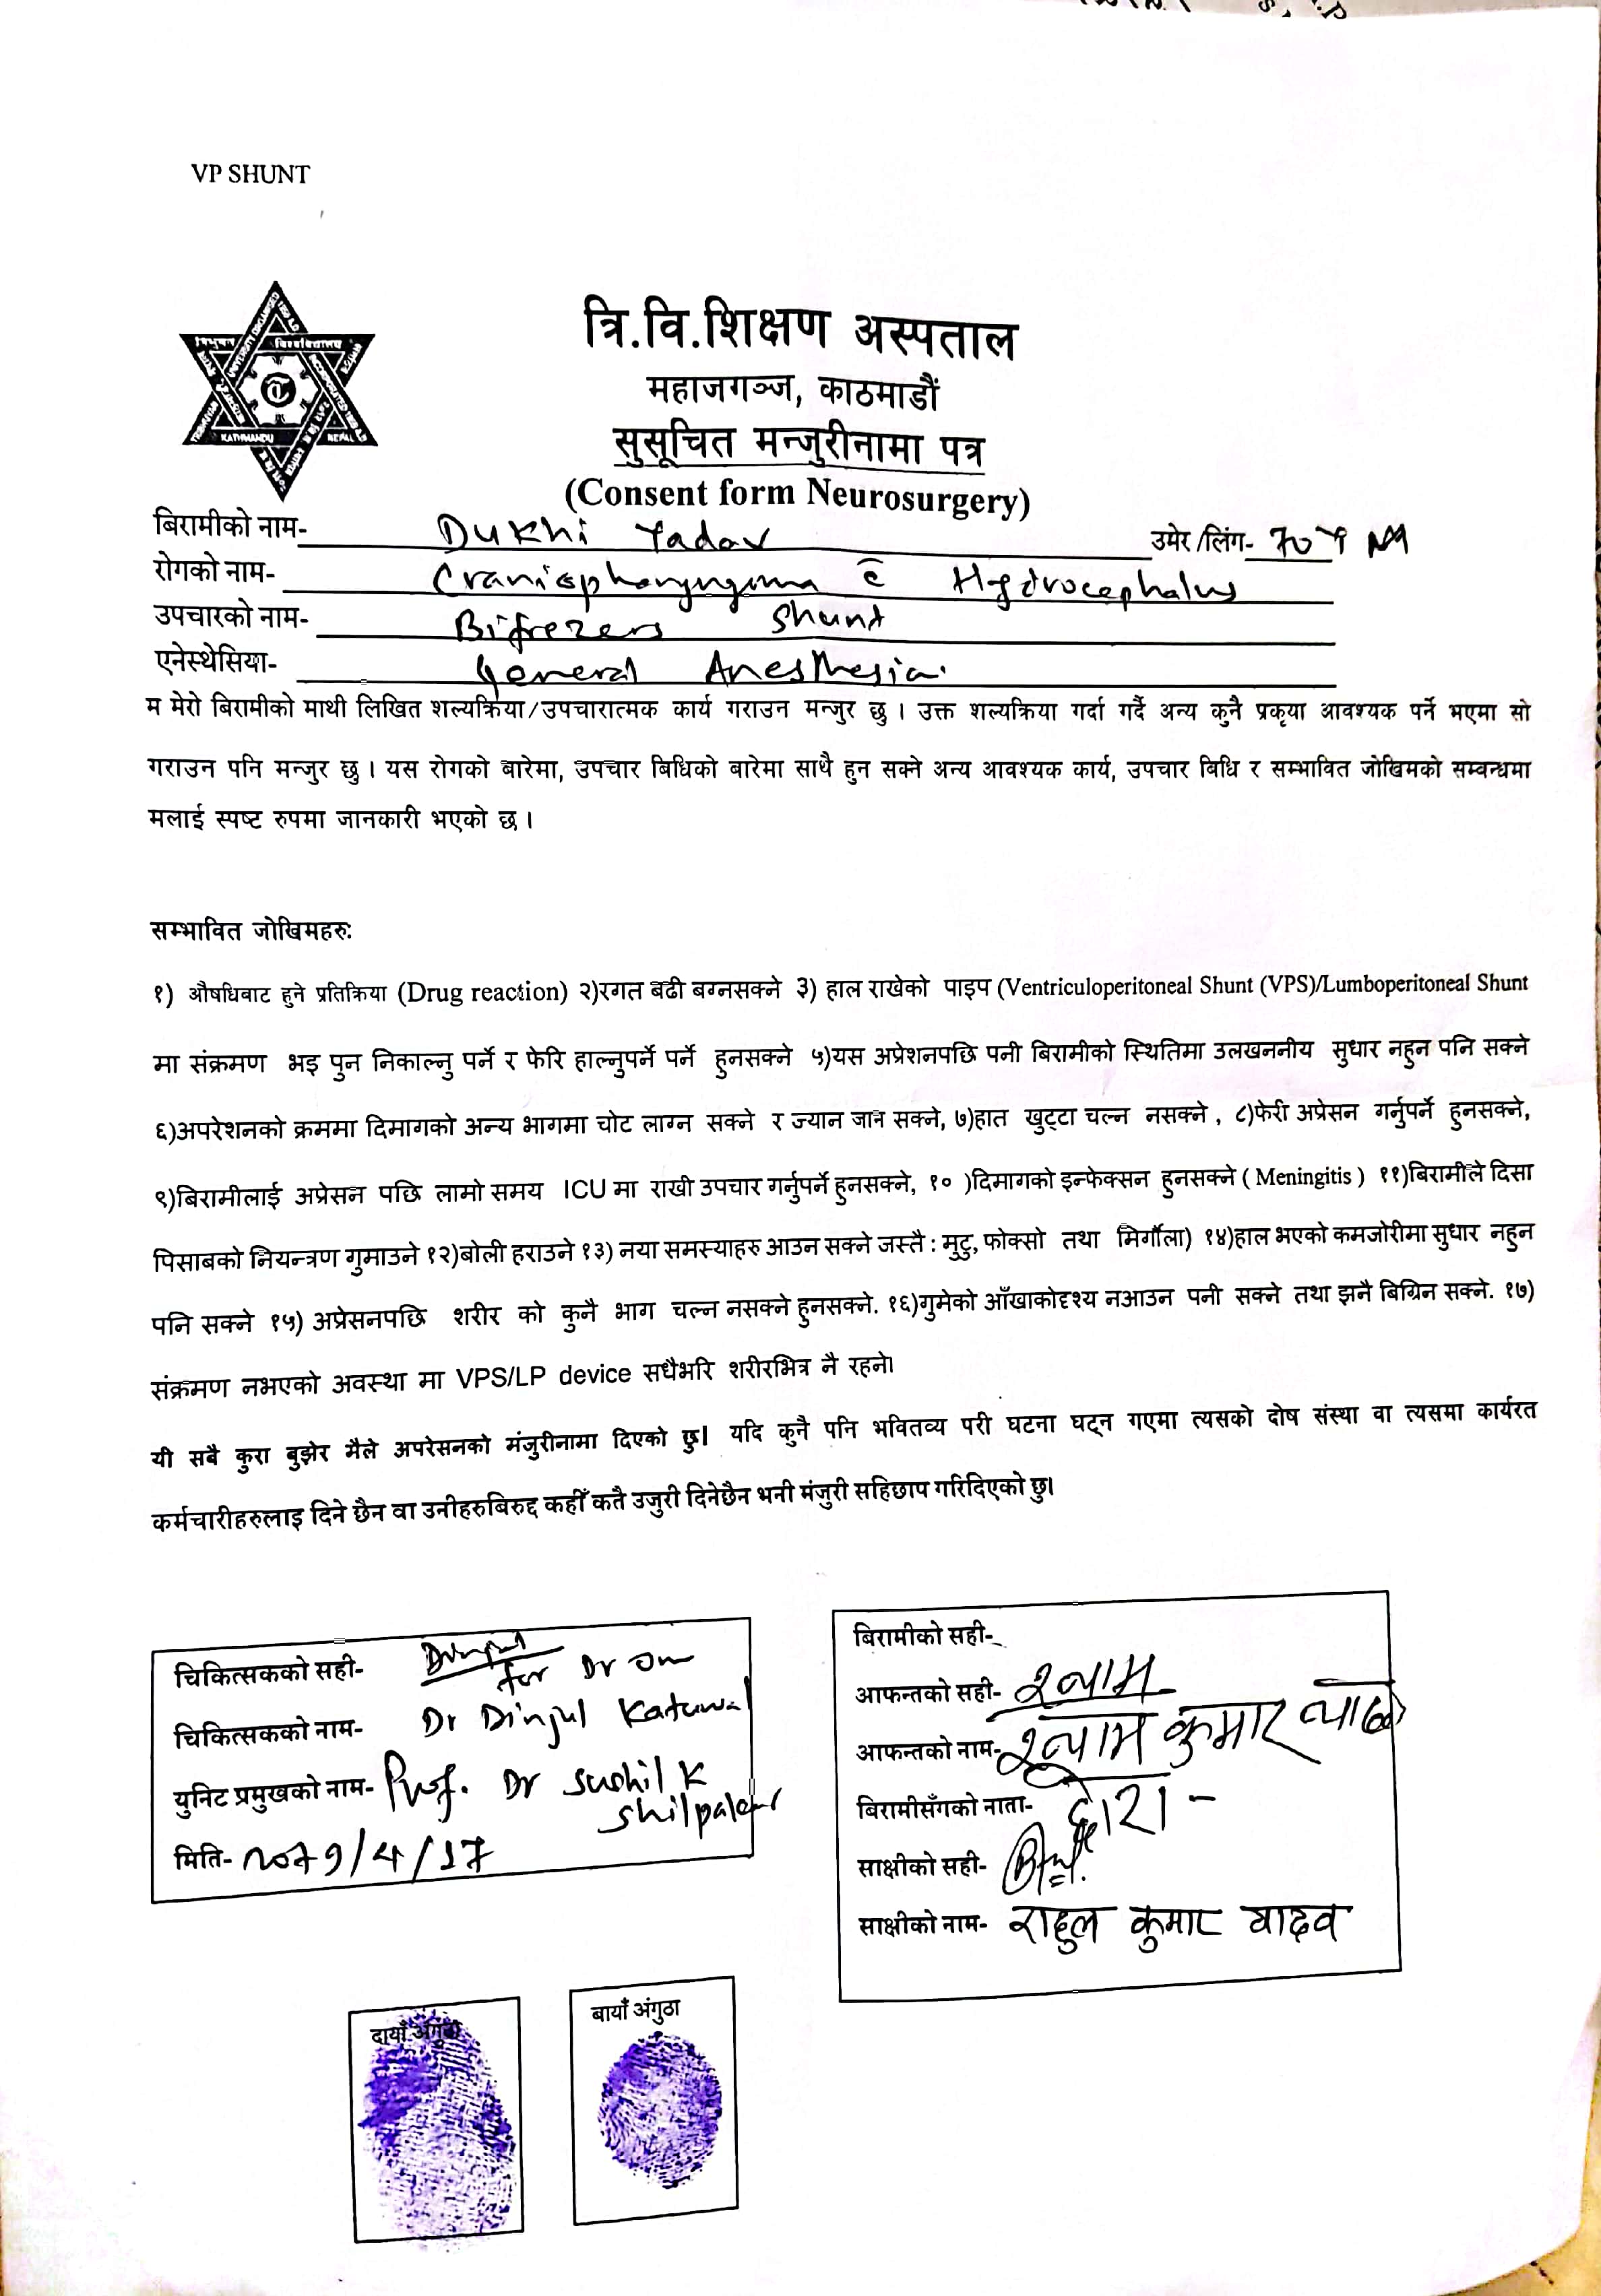 VP SHUNT
त्रि.वि.शिक्षण अस्पताल
महाजगञ्ज, काठमाडौं
सुसूचित मन्जुरीनामा पत्र
(Consent form Neurosurgery)
बिरामीको नाम- Dukhi Yadav उमेर/लिंग- 70 Y M
रोगको नाम- Craniopharyngioma c̄ Hydrocephalus
उपचारको नाम- Shunt
एनेस्थेसिया- General Anesthesia.
म मेरो बिरामीको माथी लिखित शल्यक्रिया/उपचारात्मक कार्य गराउन मन्जुर छु । उक्त शल्यक्रिया गर्दा गर्दै अन्य कुनै प्रकृया आवश्यक पर्ने भएमा सो
गराउन पनि मन्जुर छु । यस रोगको बारेमा, उपचार बिधिको बारेमा साथै हुन सक्ने अन्य आवश्यक कार्य, उपचार बिधि र सम्भावित जोखिमको सम्वन्धमा
मलाई स्पष्ट रुपमा जानकारी भएको छ ।
सम्भावित जोखिमहरु:
१) औषधिबाट हुने प्रतिक्रिया (Drug reaction) २)रगत बढी बग्नसक्ने ३) हाल राखेको पाइप (Ventriculoperitoneal Shunt (VPS)/Lumboperitoneal Shunt
मा संक्रमण भइ पुन निकाल्नु पर्ने र फेरि हाल्नुपर्ने पर्ने हुनसक्ने ५)यस अप्रेशनपछि पनी बिरामीको स्थितिमा उलखननीय सुधार नहुन पनि सक्ने
६)अपरेशनको क्रममा दिमागको अन्य भागमा चोट लाग्न सक्ने र ज्यान जान सक्ने, ७)हात खुट्टा चल्न नसक्ने , ८)फेरी अप्रेसन गर्नुपर्ने हुनसक्ने,
९)बिरामीलाई अप्रेसन पछि लामो समय ICU मा राखी उपचार गर्नुपर्ने हुनसक्ने, १० )दिमागको इन्फेक्सन हुनसक्ने ( Meningitis ) ११)बिरामीले दिसा
पिसाबको नियन्त्रण गुमाउने १२)बोली हराउने १३) नया समस्याहरु आउन सक्ने जस्तै : मुटु, फोक्सो तथा मिर्गौला) १४)हाल भएको कमजोरीमा सुधार नहुन
पनि सक्ने १५) अप्रेसनपछि शरीर को कुनै भाग चल्न नसक्ने हुनसक्ने. १६)गुमेको आँखाकोदृश्य नआउन पनी सक्ने तथा झनै बिग्रिन सक्ने. १७)
संक्रमण नभएको अवस्था मा VPS/LP device सधैभरि शरीरभित्र नै रहने।
यी सबै कुरा बुझेर मैले अपरेसनको मंजुरीनामा दिएको छु। यदि कुनै पनि भवितव्य परी घटना घट्न गएमा त्यसको दोष संस्था वा त्यसमा कार्यरत
कर्मचारीहरुलाइ दिने छैन वा उनीहरुबिरुद्द कहीँ कतै उजुरी दिनेछैन भनी मंजुरी सहिछाप गरिदिएको छु।
चिकित्सकको सही- for Dr Om
चिकित्सकको नाम- Dr Dinjul Katuwal
युनिट प्रमुखको नाम- Prof. Dr Sushil K
Shilpakar
मिति- २०७९/4/17
बिरामीको सही-
आफन्तको सही- श्याम
आफन्तको नाम- श्याम कुमार यादव
बिरामीसँगको नाता- छोरा -
साक्षीको सही-
साक्षीको नाम- राहुल कुमार यादव
दायाँ अंगुठा
बायाँ अंगुठा